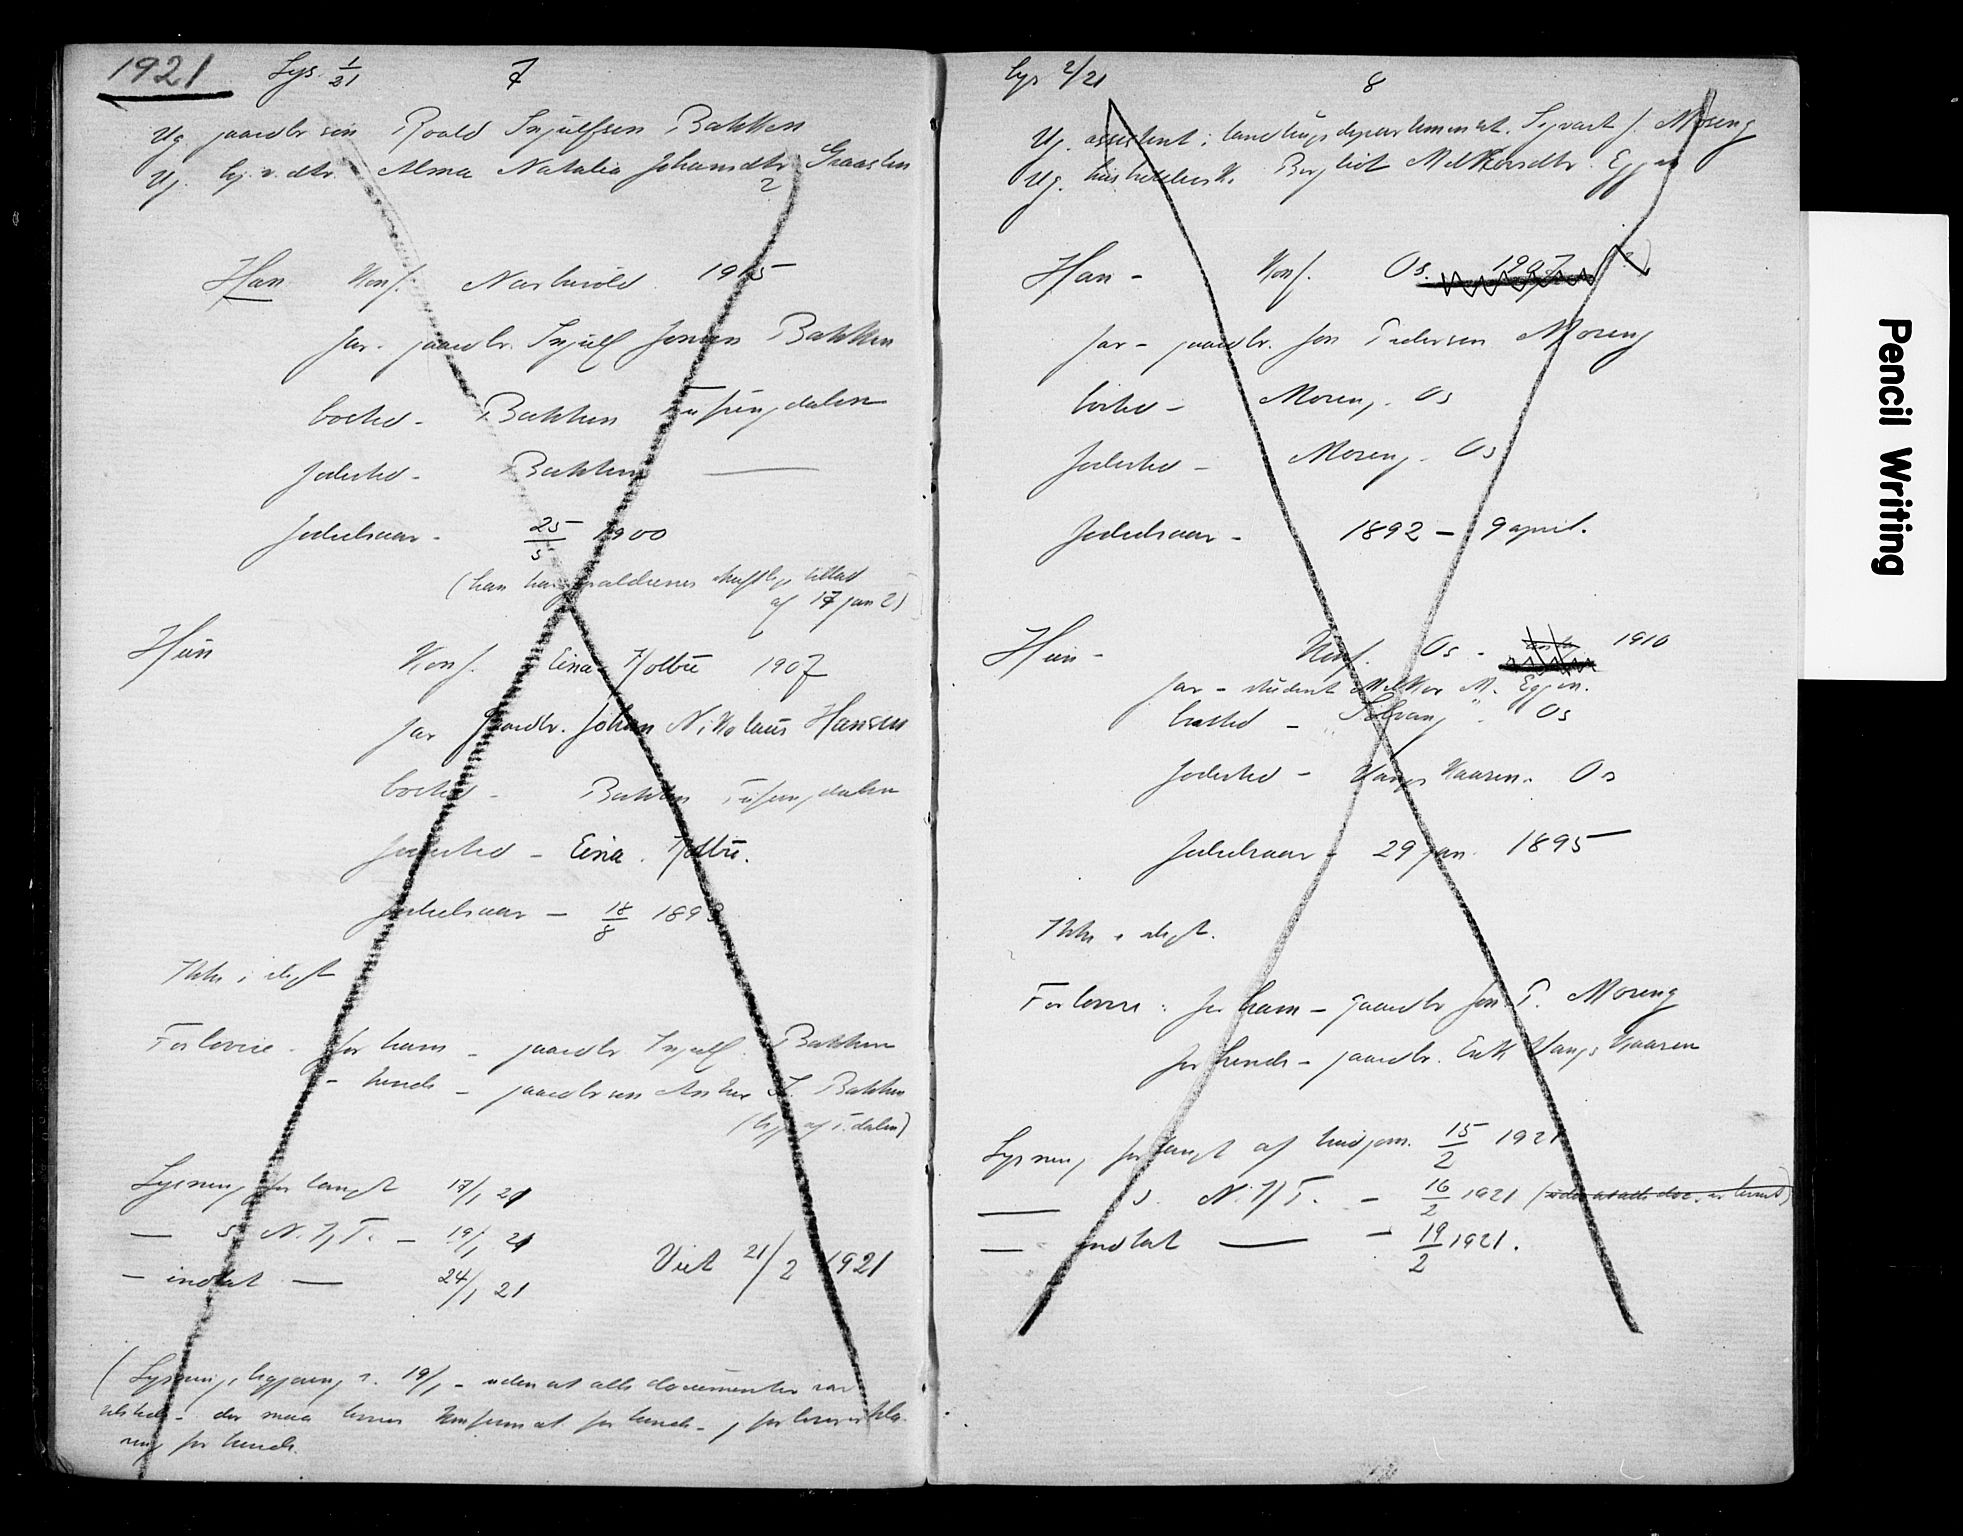 1921 Lys. 1/21 7
Ug. gaardbr. søn Roald Ingulfsen Bakken
Ug. dtr. Alma Natalia Johansdtr. Graaslen
2
Han Konf. Narbuvold 1915
far - gaardbr. Ingulf Jonsen Bakken
bosted - Bakken Tufsingdalen
fødested - Bakken —
fødselsaar - 25/5 1900
(han har forældrenes skriftlige tillad
af 17 jan 21)
Hun Konf. Eina Kolbu 1907
far gaardbr. Johan Nikolaus Hansen
bosted - Bakken Tufsingdalen
fødested - Eina. Kolbu.
fødselsaar - 18/8 1893
Ikke i slegt
Forlovere - for ham - gaardbr Ingulf Bakken
- hende - gaardbr I. Bakken
(begge af T.dalen)
Lysning forlangt 17/1 21
— s. N. i T. - 19/1 21
- indtat — 24/1 21
Viet 21/2 1921
(Lysning begjæring s. 19/1 - uden at alle documenter var
tilstede - der maa konfirmat. for hende - forlovererklæ-
ring for hende.
Lys 2/21 8
Ug. assistent i landbrugsdepartementet. Sigvart J. Moseng
Ug. Bergliot Melkiorsdtr. Eggen
Han - Konf. Os. 1907 (?)
far - gaardbr. Jon Pedersen Moseng
bosted - Moseng. Os
fødested - Moseng. Os
fødselsaar - 1892 - 9 april.
Hun - Konf. Os - 1910
far - student Melkior M. Eggen.
bosted - Solvang. Os
fødested - Vangskaasen. Os
fødselsaar - 29 jan. 1895
Ikke i slegt.
Forlovere: for ham - gaardbr Jon P. Moseng
for hende - gaardbr. Erik Vangskaasen
Lysning forlangt af brudgom. 15/2 1921
— s. N. i T. - 16/2 1921 (uden at alle doc. er kommet)
— indtat — - 19/2 1921.
Pencil Writing